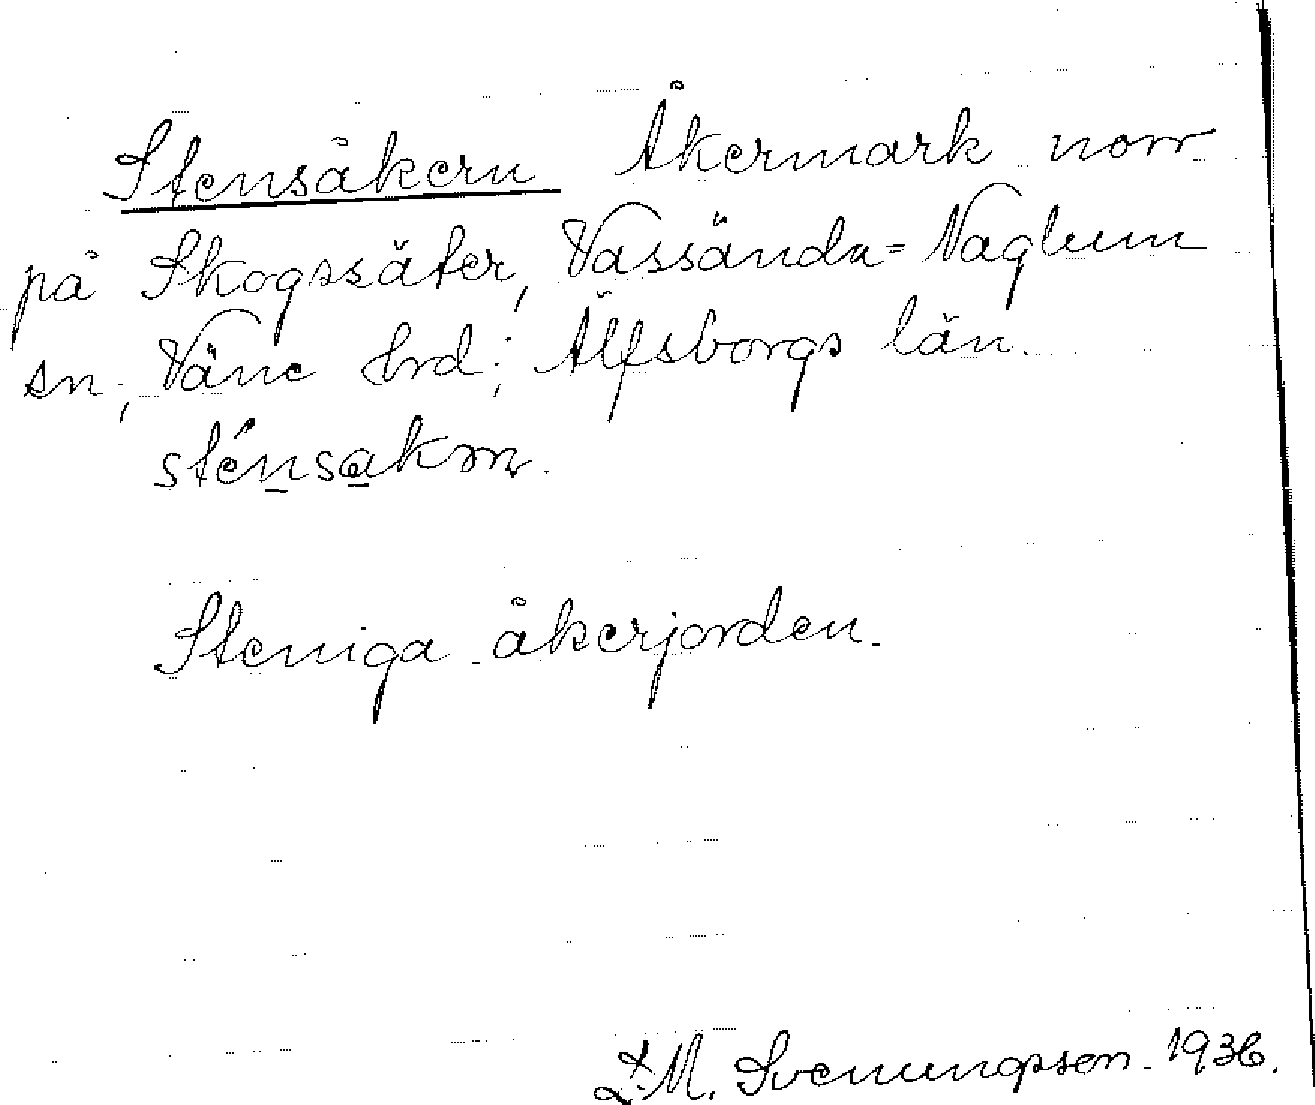 Stensåkern Åkermark norr
på Skogssäter, Vassända=Naglum
sn, Väne hrd; Älfsborgs län.
sténsakm.
Steniga åkerjorden.
M. Svenungsson. 1936.